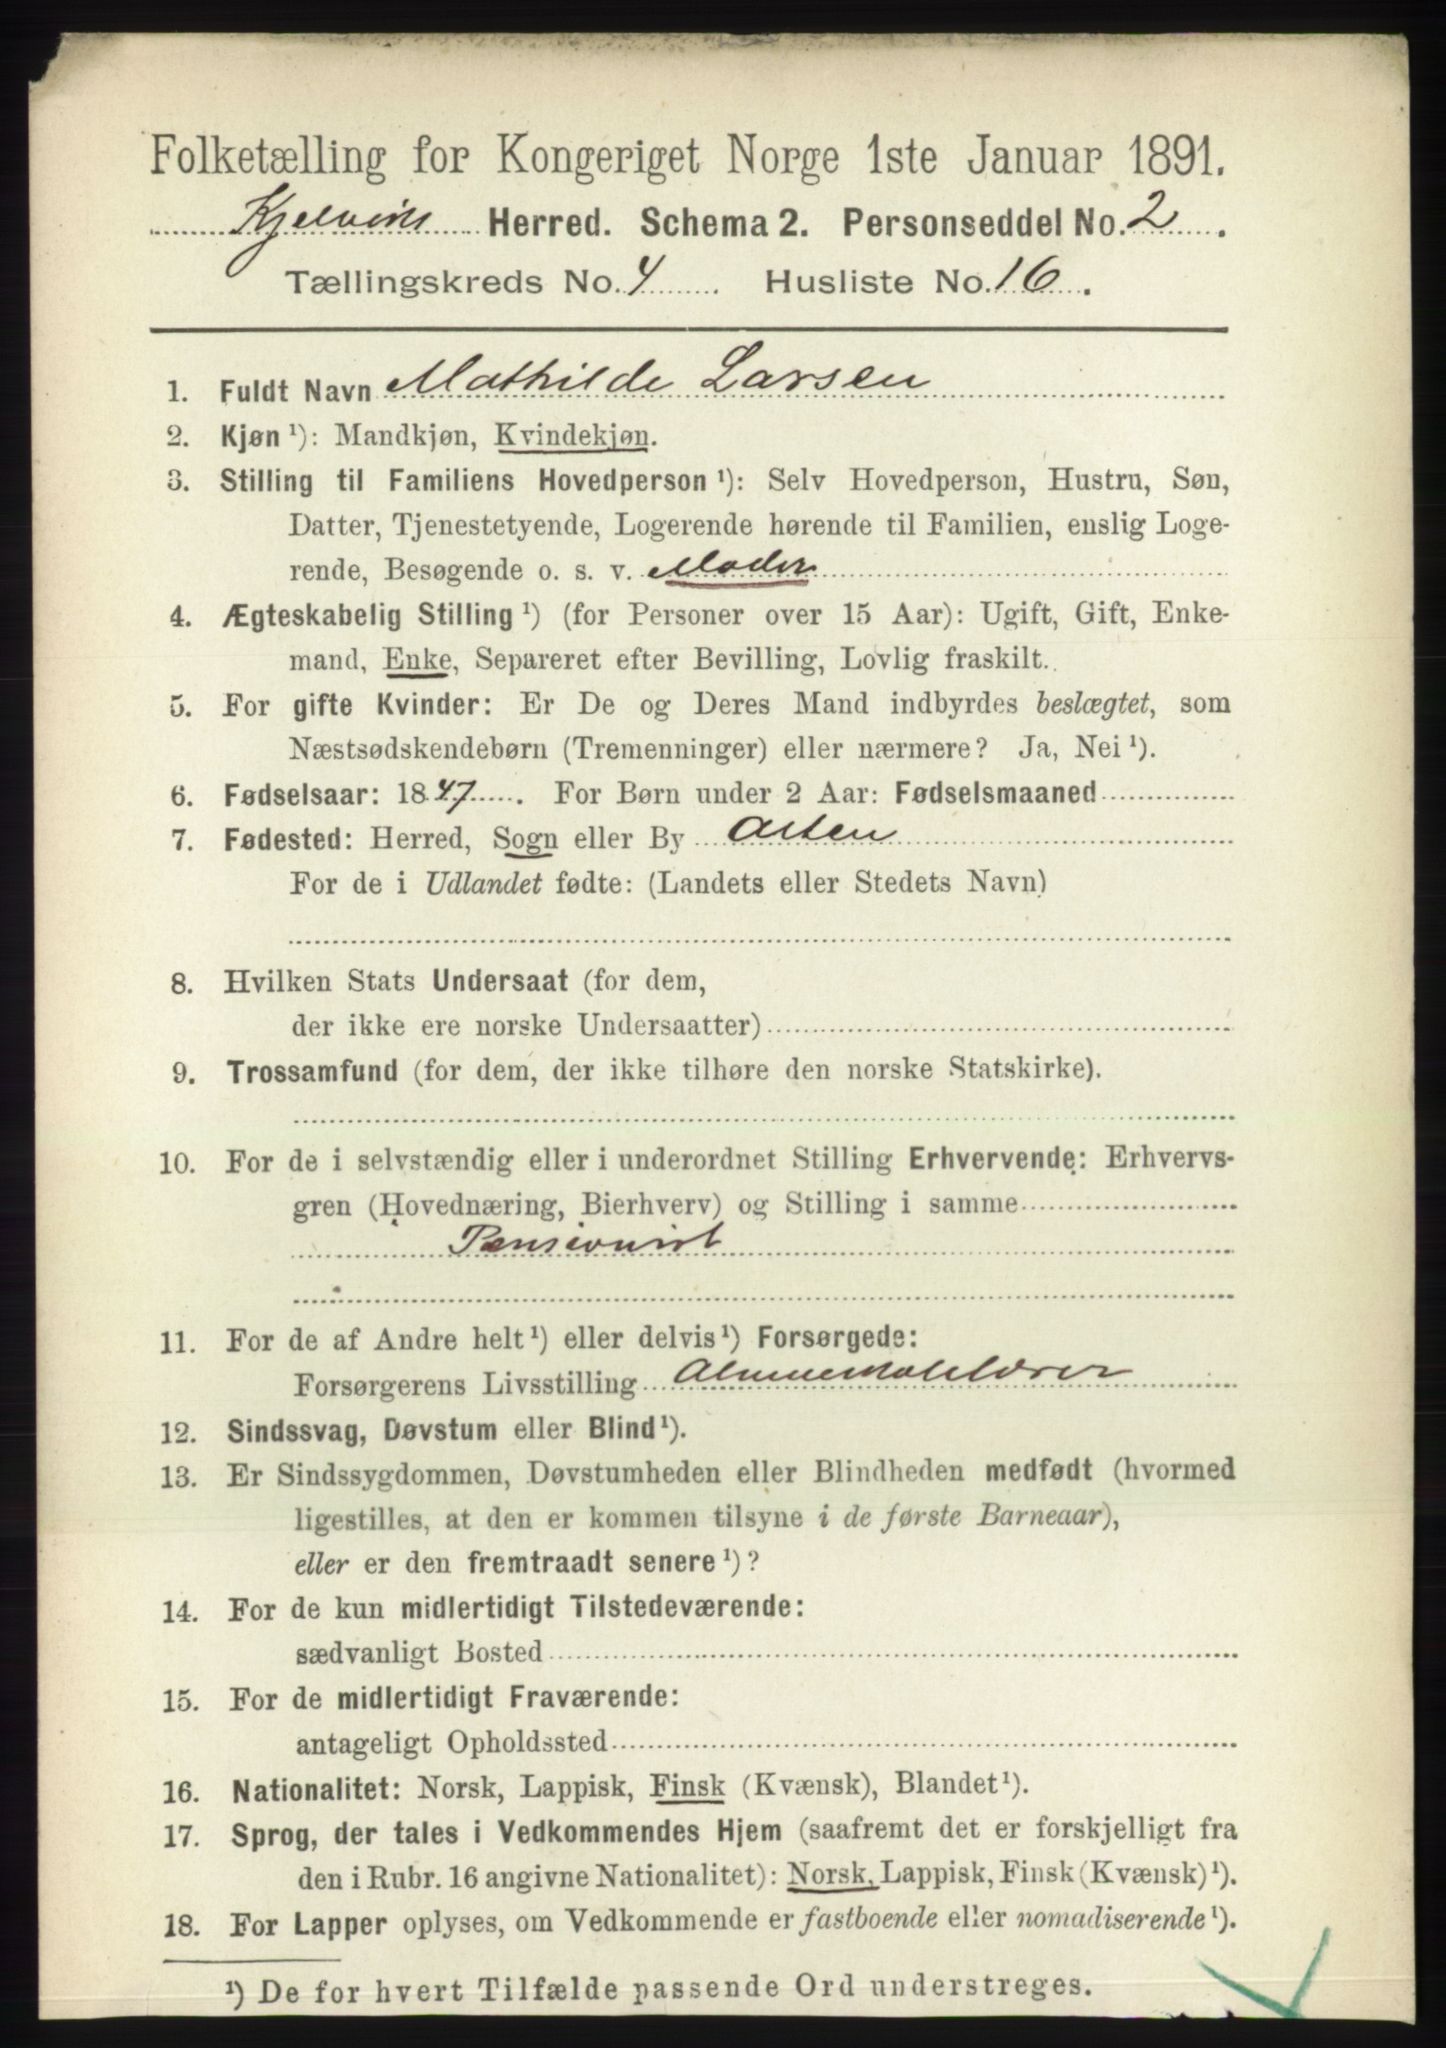 Folketælling for Kongeriget Norge 1ste Januar 1891.
Kjelvik Herred. Schema 2. Personseddel No. 2.
Tællingskreds No. 4 Husliste No. 16.
1. Fuldt Navn Mathilde Larsen
2. Kjøn ¹): Mandkjøn, Kvindekjøn.
3. Stilling til Familiens Hovedperson ¹): Selv Hovedperson, Hustru, Søn,
Datter, Tjenestetyende, Logerende hørende til Familien, enslig Loge-
rende, Besøgende o. s. v. Moder
4. Ægteskabelig Stilling ¹) (for Personer over 15 Aar): Ugift, Gift, Enke-
mand, Enke, Separeret efter Bevilling, Lovlig fraskilt.
5. For gifte Kvinder: Er De og Deres Mand indbyrdes beslægtet, som
Næstsødskendebørn (Tremenninger) eller nærmere? Ja, Nei ¹).
6. Fødselsaar: 1847. For Børn under 2 Aar: Fødselsmaaned
7. Fødested: Herred, Sogn eller By Alten
For de i Udlandet fødte: (Landets eller Stedets Navn)
8. Hvilken Stats Undersaat (for dem,
der ikke ere norske Undersaatter)
9. Trossamfund (for dem, der ikke tilhøre den norske Statskirke).
10. For de i selvstændig eller i underordnet Stilling Erhvervende: Erhvervs-
gren (Hovednæring, Bierhverv) og Stilling i samme
Pensionist
11. For de af Andre helt ¹) eller delvis ¹) Forsørgede:
Forsørgerens Livsstilling Almueskolelærer
12. Sindssvag, Døvstum eller Blind ¹).
13. Er Sindssygdommen, Døvstumheden eller Blindheden medfødt (hvormed
ligestilles, at den er kommen tilsyne i de første Barneaar),
eller er den fremtraadt senere ¹)?
14. For de kun midlertidigt Tilstedeværende:
sædvanligt Bosted
15. For de midlertidigt Fraværende:
antageligt Opholdssted
16. Nationalitet: Norsk, Lappisk, Finsk (Kvænsk), Blandet ¹).
17. Sprog, der tales i Vedkommendes Hjem (saafremt det er forskjelligt fra
den i Rubr. 16 angivne Nationalitet): Norsk, Lappisk, Finsk (Kvænsk) ¹).
18. For Lapper oplyses, om Vedkommende er fastboende eller nomadiserende ¹).
¹) De for hvert Tilfælde passende Ord understreges.